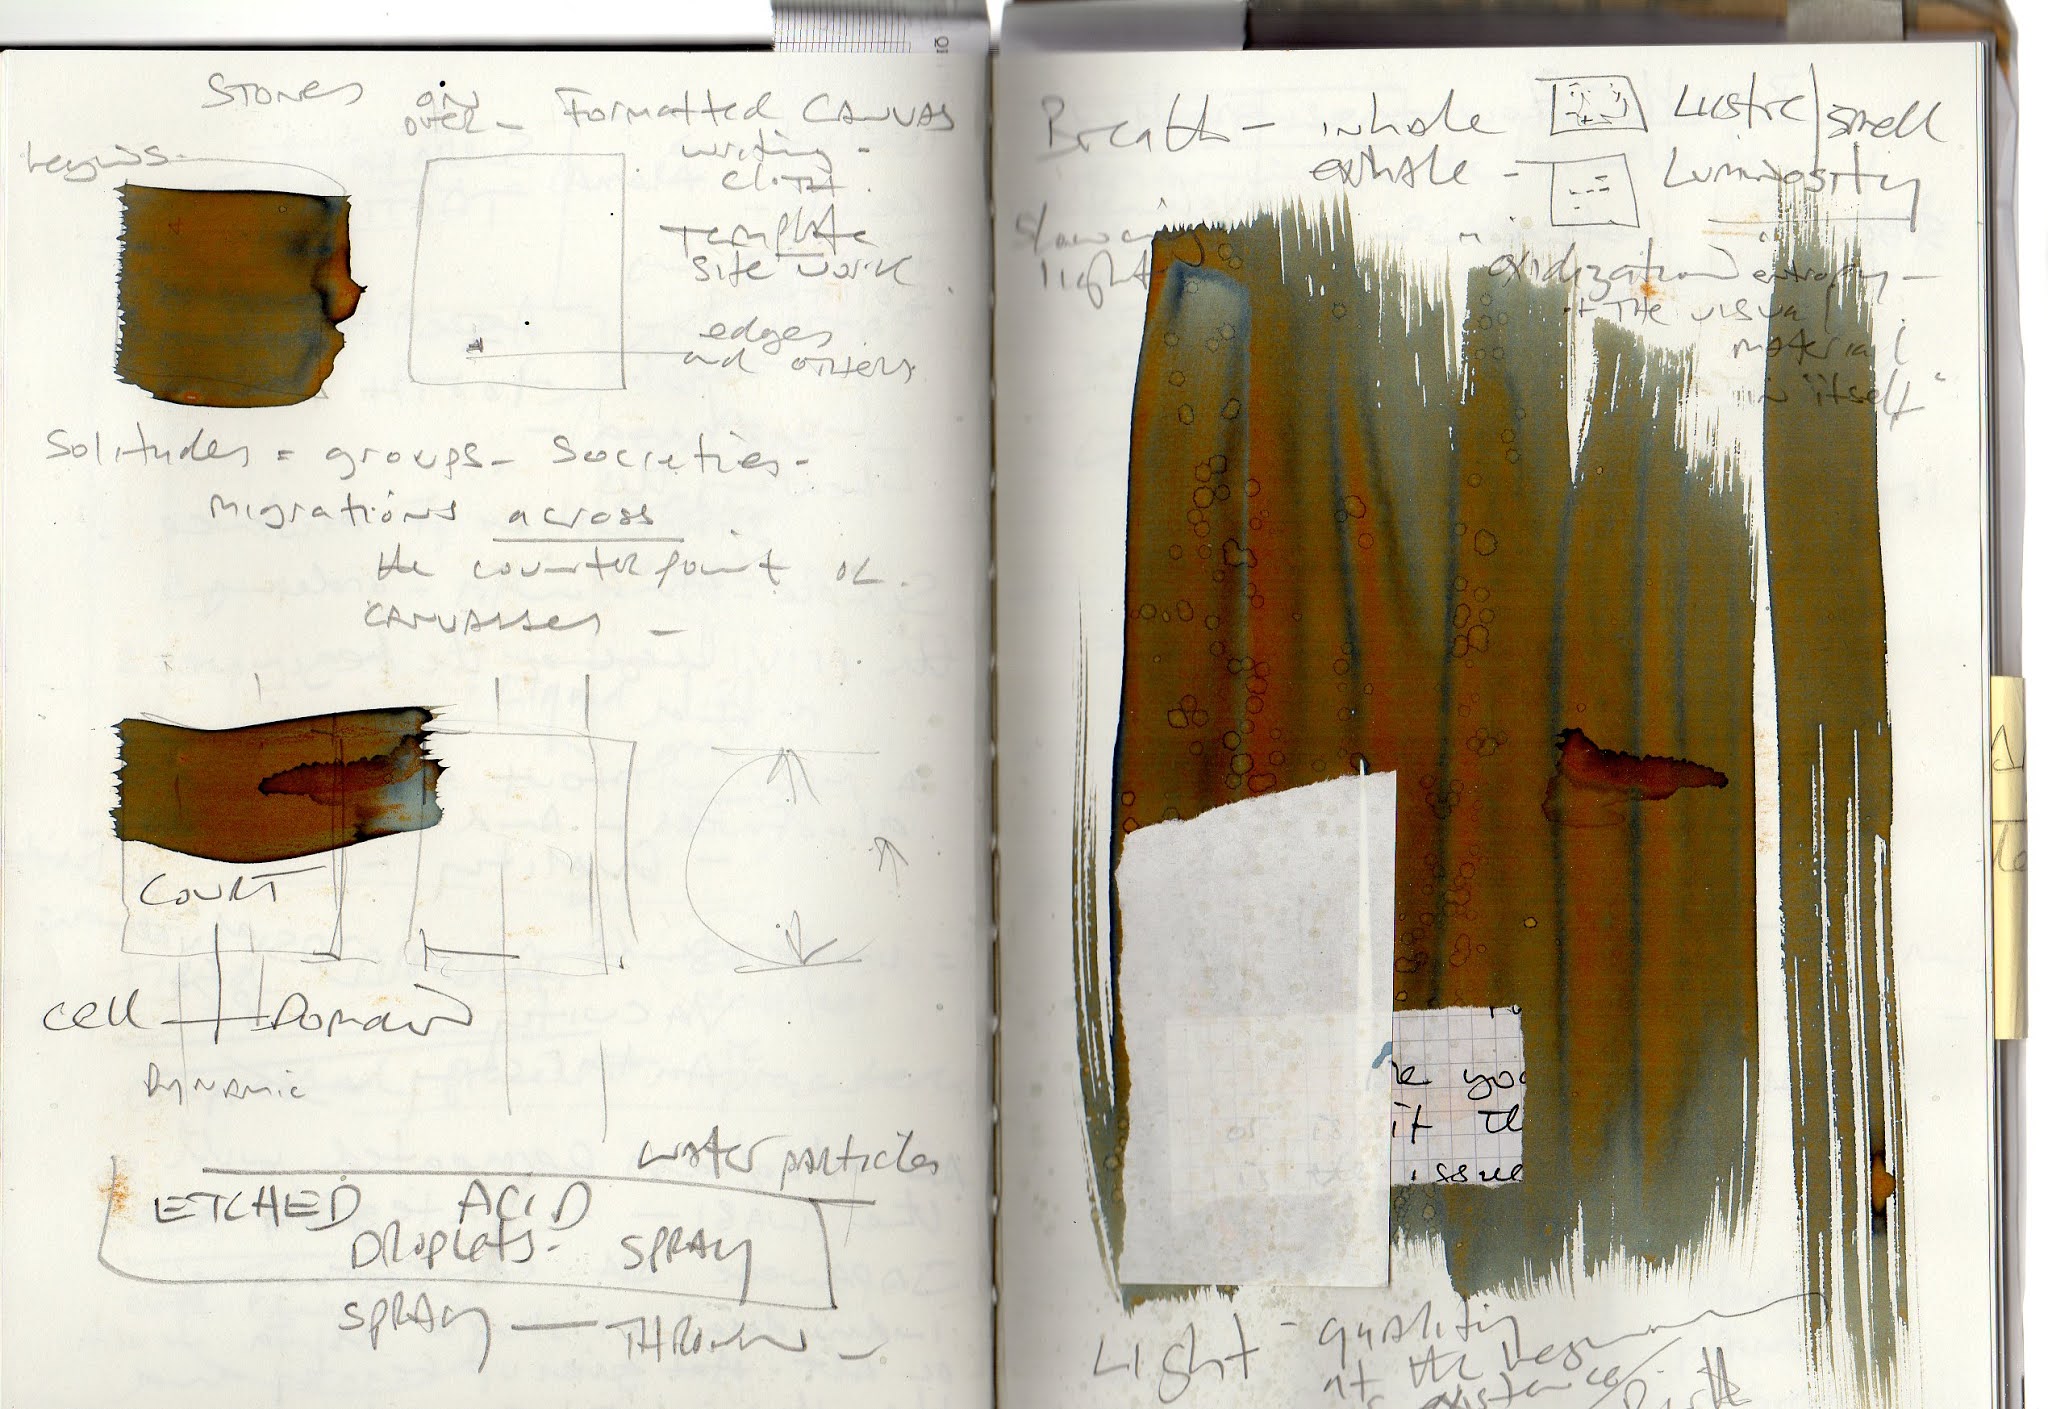 STONES on over - Formatted CANVAS
writing -
cloth.
Template
site work
edges
and others
Solitudes = groups - Societies -
migrations across
the counterpoint of
CANVASSES -
COURT
cell Domain
Dynamic
water particles
ETCHED ACID
DROPLETS - SPRAY
SPRAY — THROWN -
Breath - inhale Lustre / smell
exhale - Luminosity
light
"oxidization" entropy -
+ The visual
material
in "itself"
yo
it th
issue
Light - quality
at the
existence /